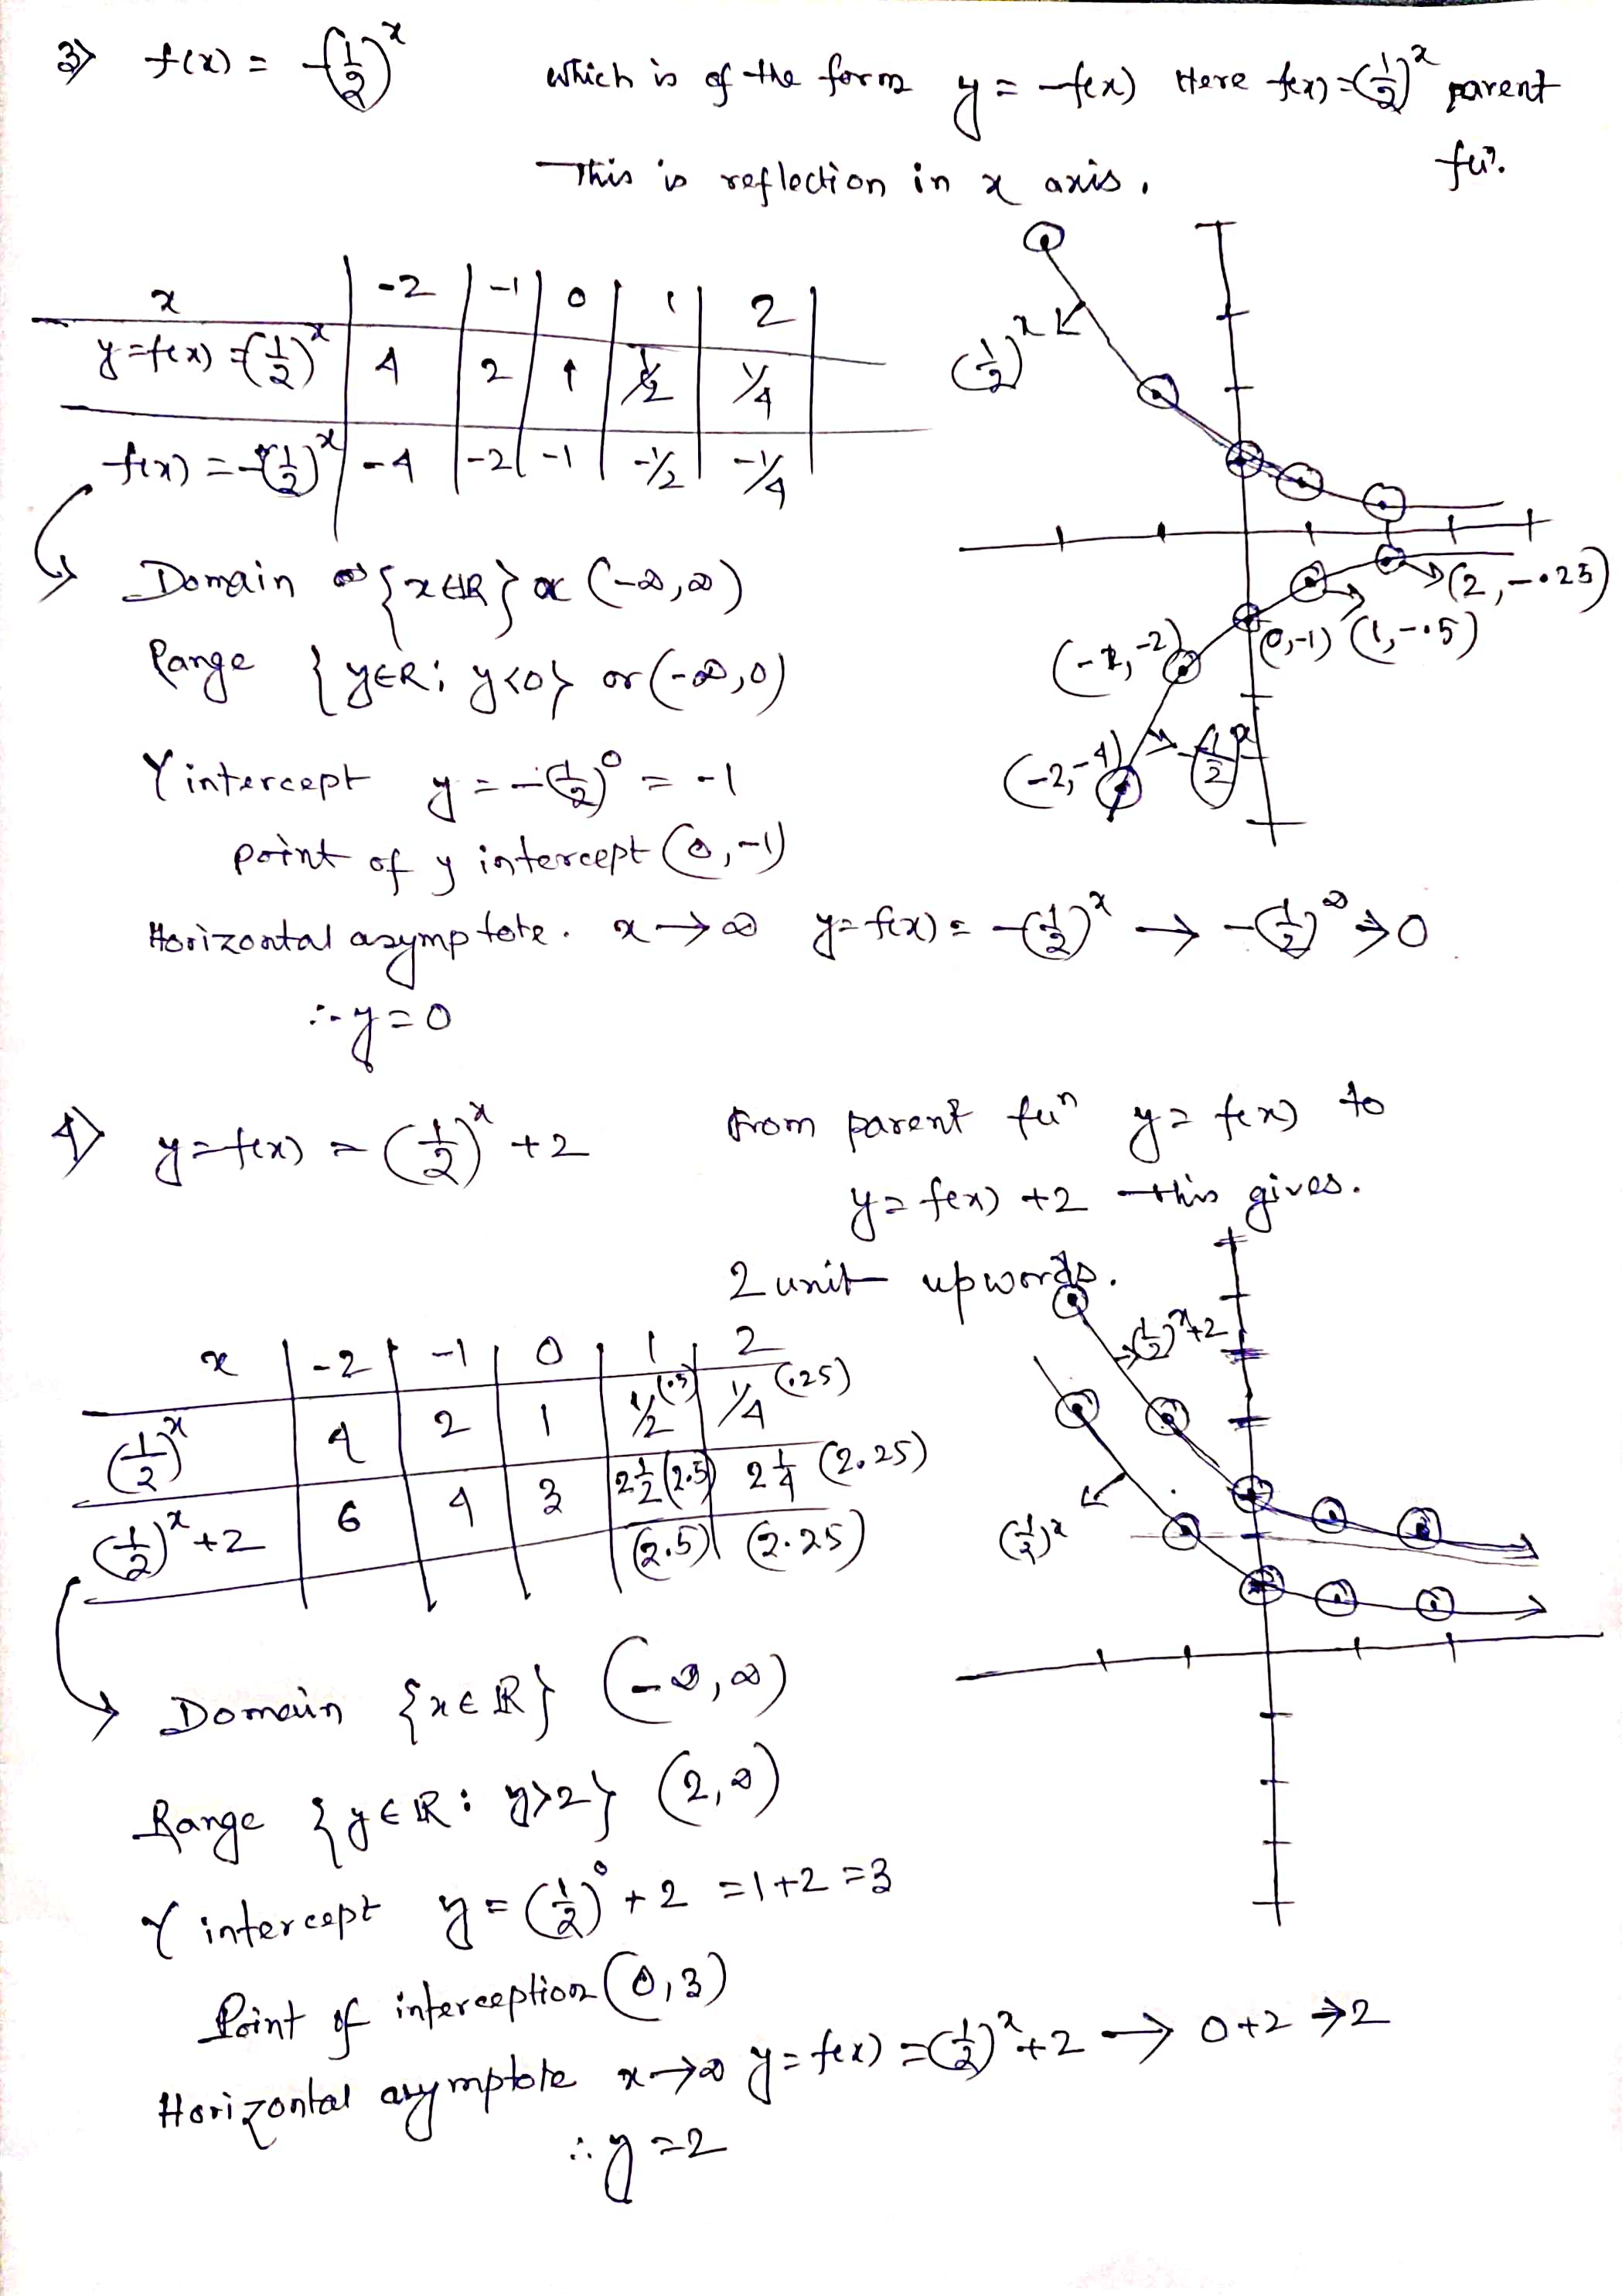 3) f(x) = -(1/2)^x
which is of the form y = -f(x) Here f(x) = (1/2)^x parent
fun.
This is reflection in x axis.
x | -2 | -1 | 0 | 1 | 2
y = f(x) = (1/2)^x | 4 | 2 | 1 | 1/2 | 1/4
f(x) = -(1/2)^x | -4 | -2 | -1 | -1/2 | -1/4
(1/2)^x
(2, -.25)
(1, -.5)
(0,-1)
(-1,-2)
(-2,-4)
-(1/2)^x
Domain {x∈R} or (-∞,∞)
Range {y∈R; y<0} or (-∞,0)
Y intercept y = -(1/2)^0 = -1
point of y intercept (0,-1)
Horizontal asymptote. x → ∞ y = f(x) = -(1/2)^x → -(1/2)^∞ → 0
∴ y = 0
4) y = f(x) = (1/2)^x + 2
From parent fun y = f(x) to
y = f(x) + 2 this gives.
2 unit upwords.
x | -2 | -1 | 0 | 1 | 2
(1/2)^x | 4 | 2 | 1 | 1/2 (.5) | 1/4 (.25)
(1/2)^x + 2 | 6 | 4 | 3 | 2 1/2 (2.5) | 2 1/4 (2.25)
(2.5) | (2.25)
(1/2)^x+2
(1/2)^x
Domain {x∈R} (-∞,∞)
Range {y∈R : y>2} (2,∞)
Y intercept y = (1/2)^0 + 2 = 1+2 = 3
Point of interception (0,3)
Horizontal asymptote x→∞ y = f(x) = (1/2)^x + 2 → 0+2 → 2
∴ y = 2